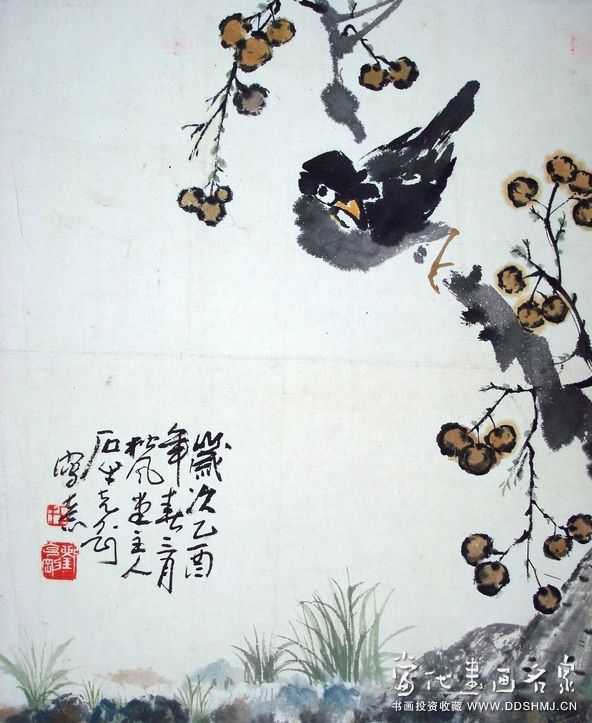 歲次乙酉
年春三月
风堂主人
石
寫意
当代書画名家
书画投资收藏 WWW.DDSHMJ.CN